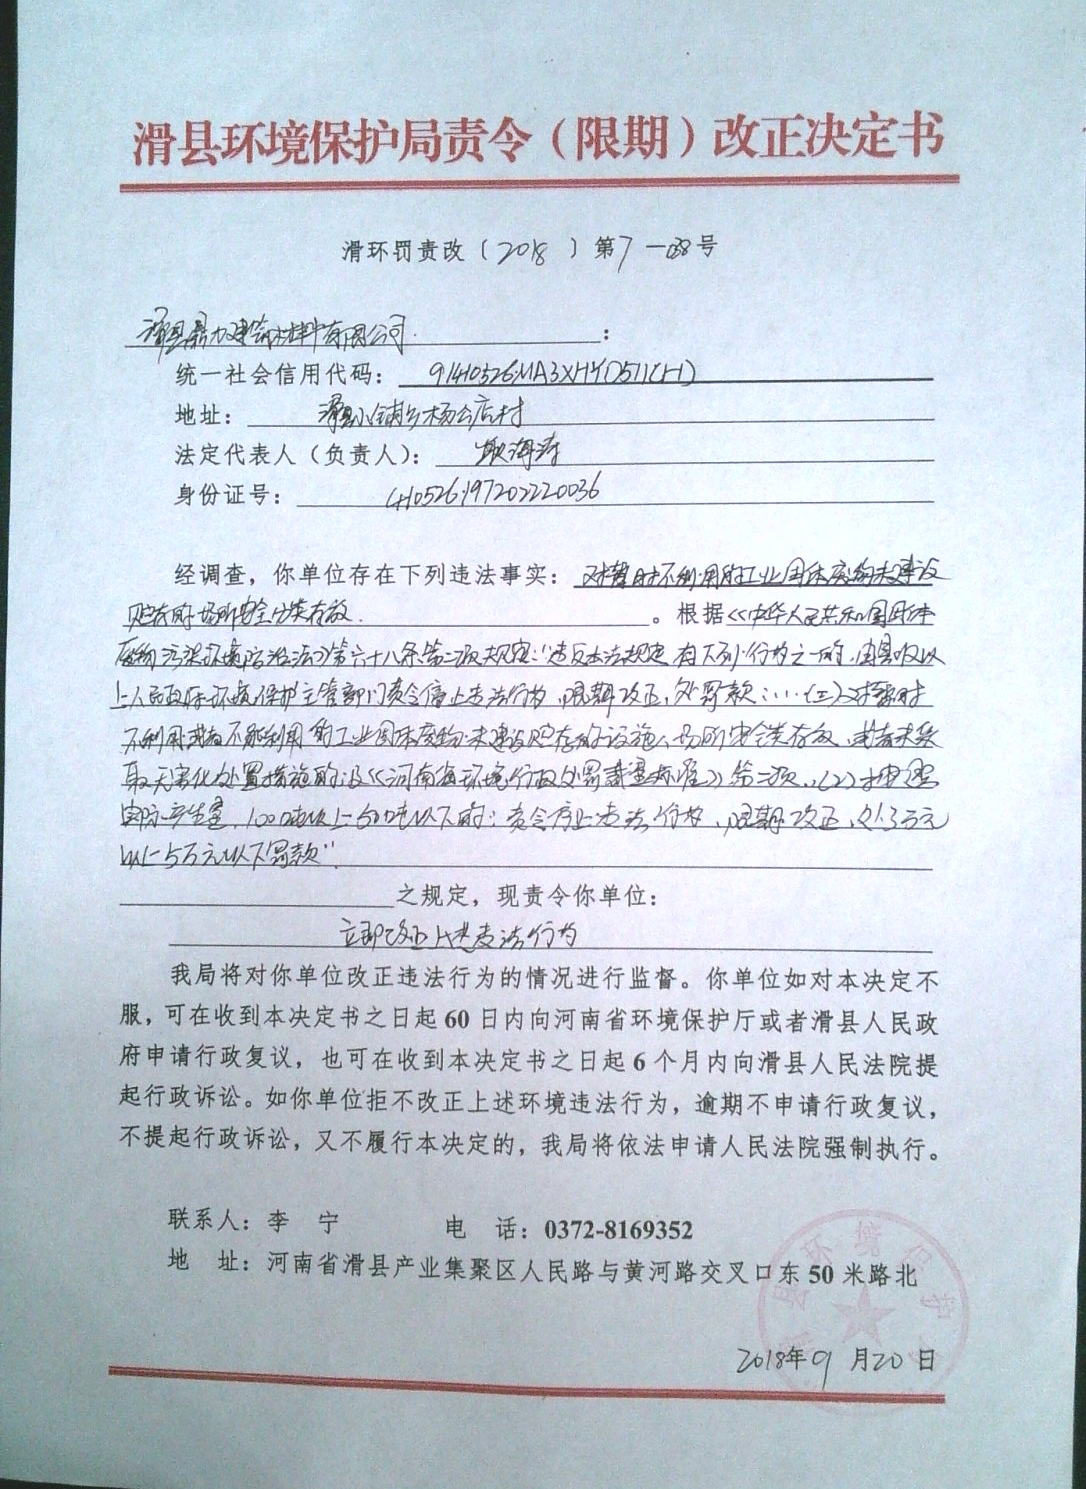 滑县环境保护局责令（限期）改正决定书
滑环罚责改（2018）第7-038号
滑县鼎力建筑材料有限公司：
统一社会信用代码：91410526MA3XHYD511(H)
地址：滑县小铺乡杨公店村
法定代表人（负责人）：海涛
身份证号：410526197202220036
经调查，你单位存在下列违法事实：对暂时不利用的工业固体废物未建设
贮存的场所安全分类存放。根据《中华人民共和国固体
废物污染环境防治法》第六十八条第二项规定："违反本法规定，有下列行为之一的，由县级以
上人民政府环境保护主管部门责令停止违法行为，限期改正，处罚款：…(二)对暂时
不利用或者不能利用的工业固体废物未建设贮存的设施、场所安全分类存放，或者未采
取无害化处置措施的；《河南省环境行政处罚裁量标准》第二项、(2)按照
实际产生量，100吨以上500吨以下的：责令停止违法行为，限期改正，处3万元
以上5万元以下罚款"
之规定，现责令你单位：
立即改正上述违法行为
我局将对你单位改正违法行为的情况进行监督。你单位如对本决定不
服，可在收到本决定书之日起60日内向河南省环境保护厅或者滑县人民政
府申请行政复议，也可在收到本决定书之日起6个月内向滑县人民法院提
起行政诉讼。如你单位拒不改正上述环境违法行为，逾期不申请行政复议，
不提起行政诉讼，又不履行本决定的，我局将依法申请人民法院强制执行。
联系人：李 宁 电 话：0372-8169352
地 址：河南省滑县产业集聚区人民路与黄河路交叉口东50米路北
县环境保护
2018年9月20日